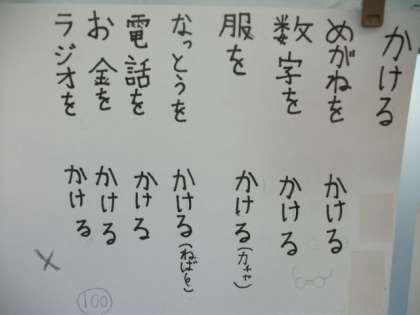 かける
めがねを かける
数字を かける
服を かける(かぎ)
なっとうを かける(ねばを)
電話を かける
お金を かける
ラジオを かける
×
100